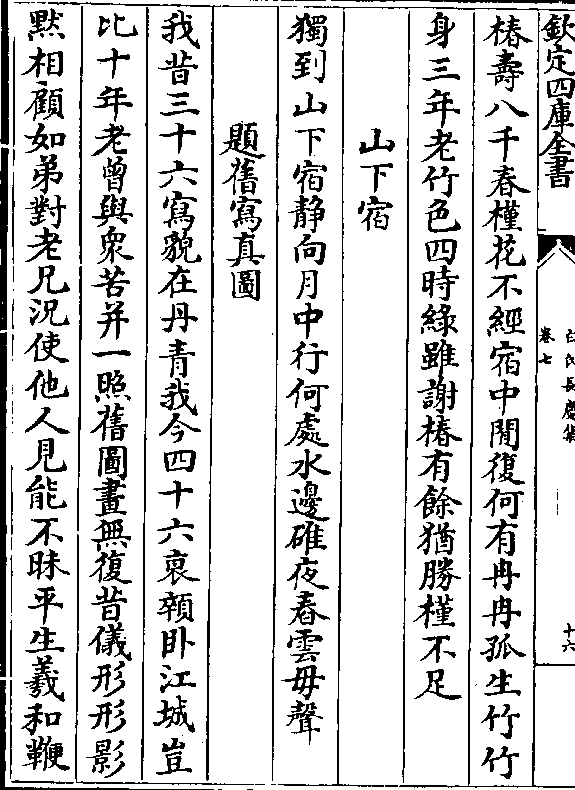 欽定四庫全書
白氏長慶集
卷七
十六
椿壽八千春槿花不經宿中間復何有冉冉孤生竹竹
身三年老竹色四時綠雖謝椿有餘猶勝槿不足
山下宿
獨到山下宿静向月中行何處水邊碓夜舂雲母聲
題舊寫真圖
我昔三十六寫貌在丹青我今四十六衰顇卧江城豈
比十年老曾與衆苦并一照舊圖畫無復昔儀形形影
黙相顧如弟對老兄況使他人見能不昧平生羲和鞭